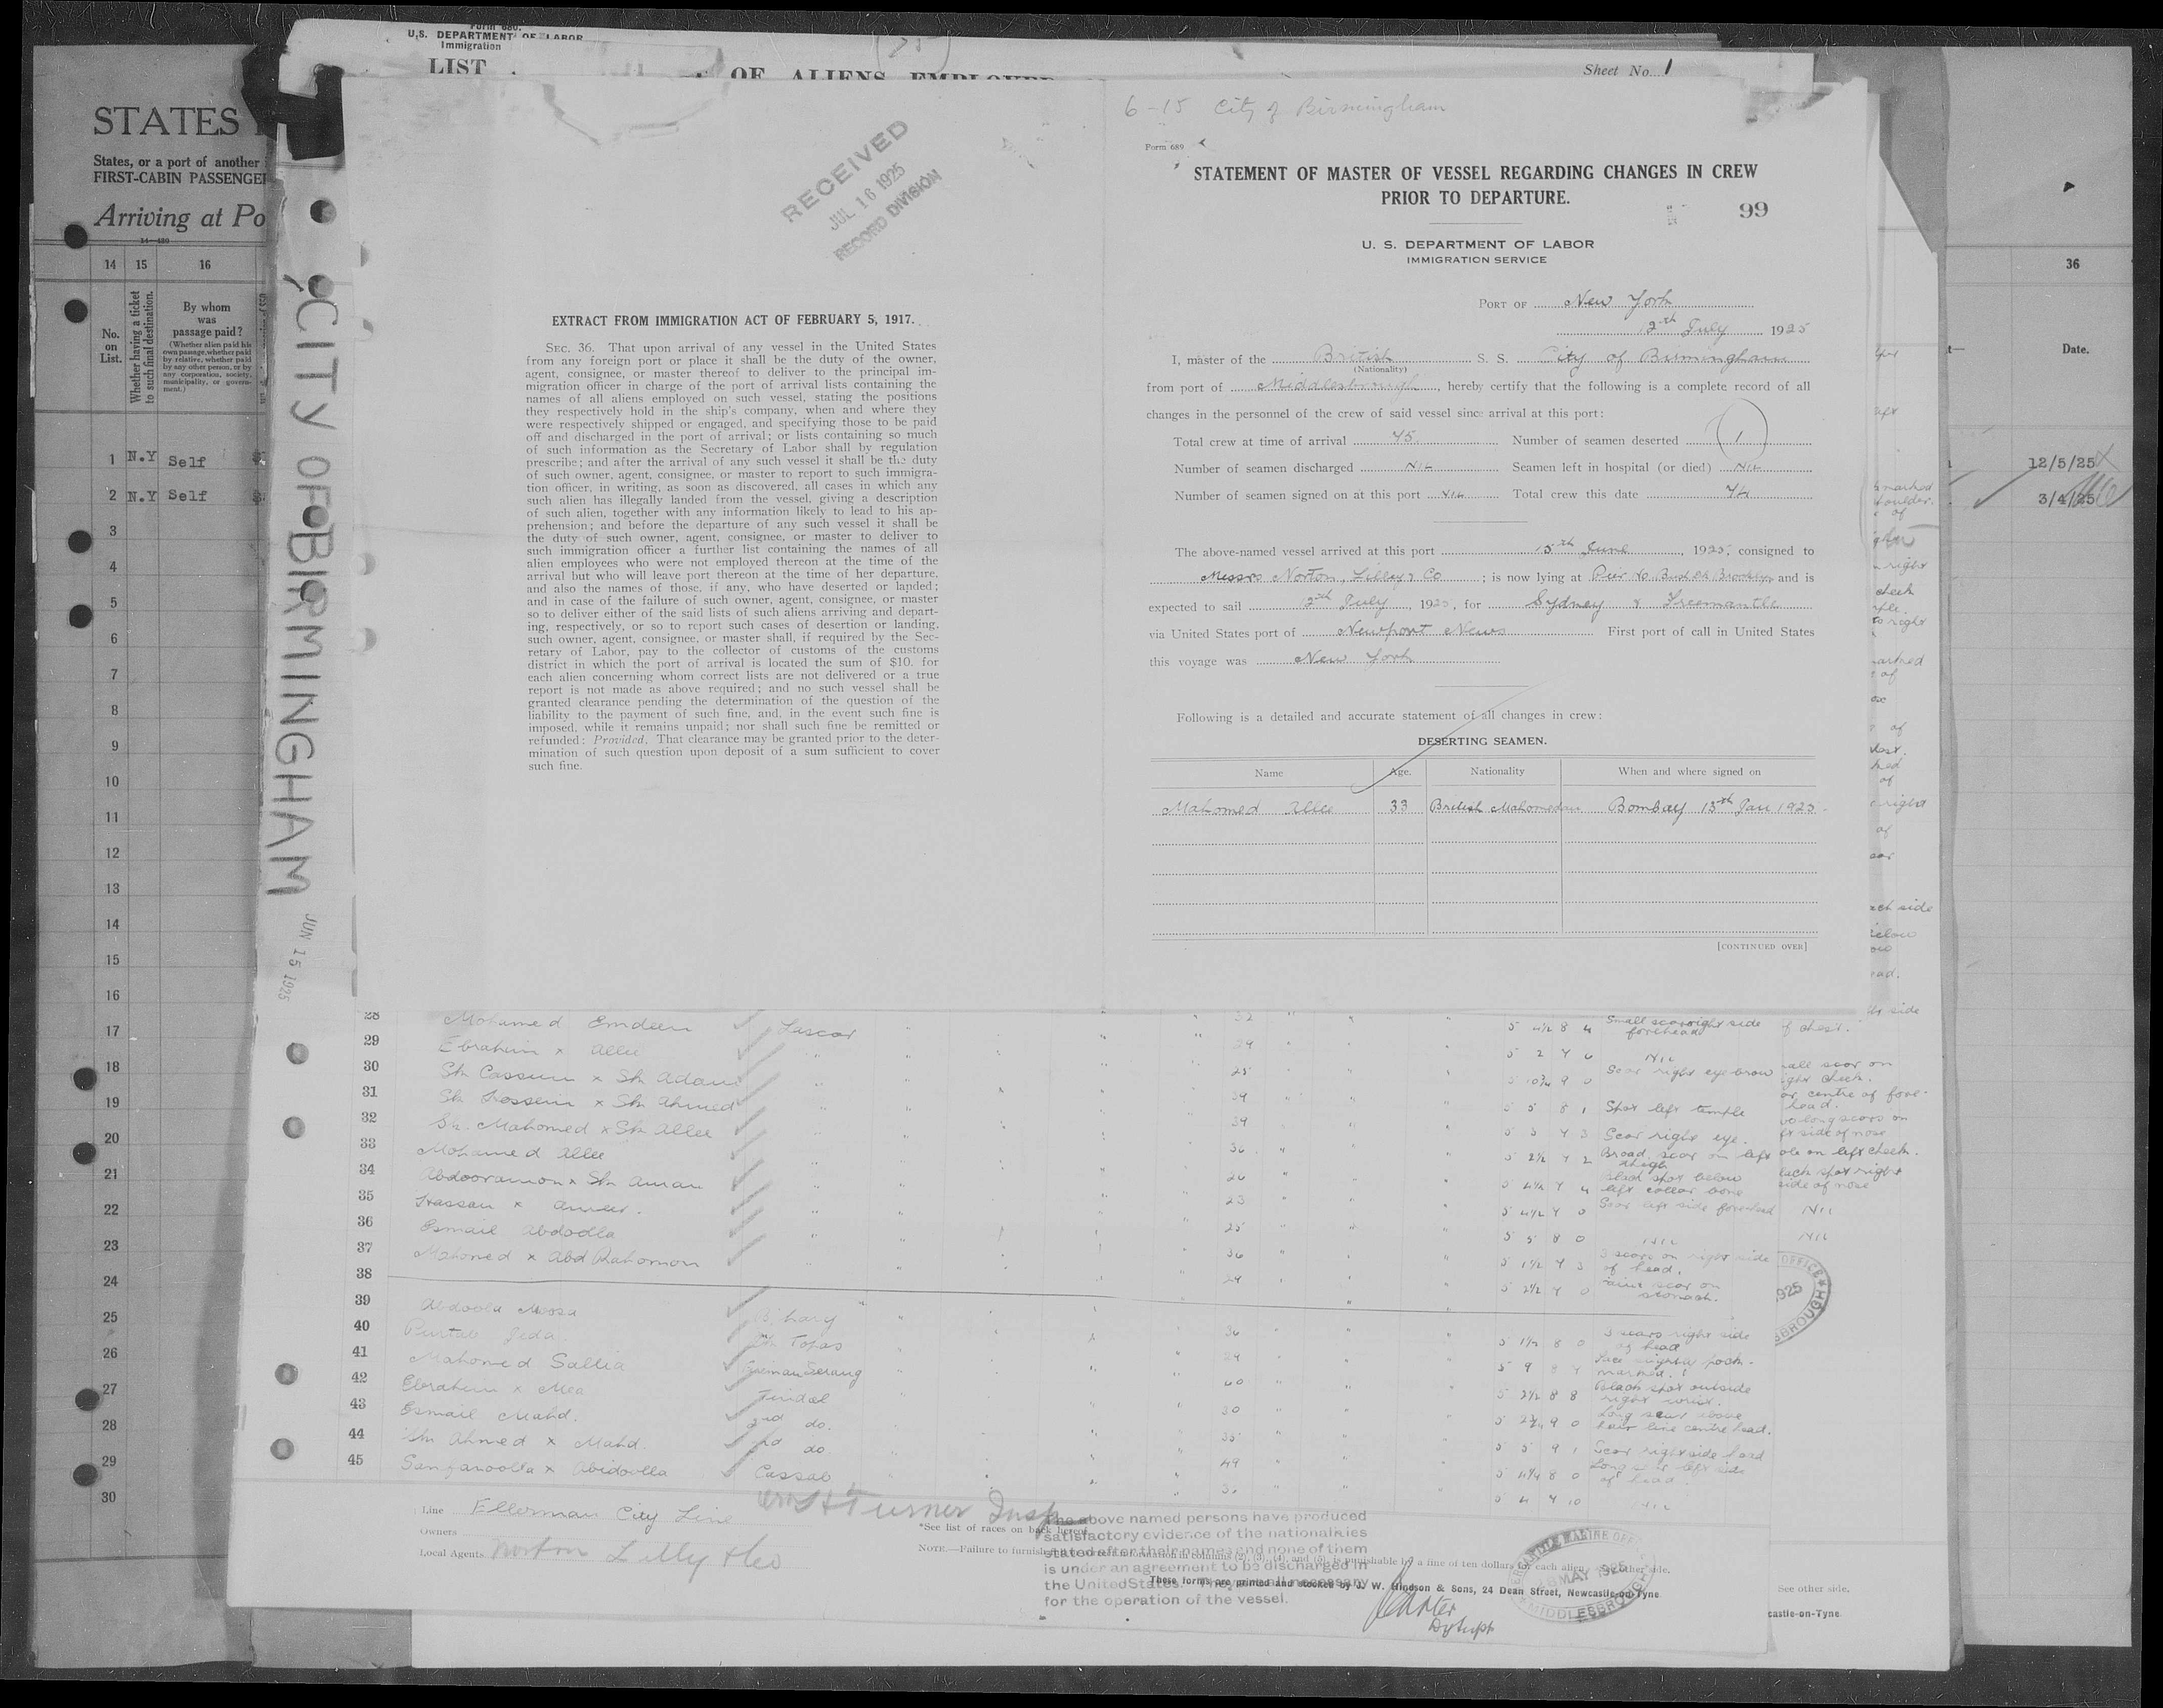 Form 680.
U.S. DEPARTMENT OF LABOR
Immigration
LIST OF ALIENS EMPLOYED
Sheet No. 1
STATES
States, or a port of another
FIRST-CABIN PASSENGE
Arriving at Po
14—430
14 15 16
No. on List.
Whether having a ticket to such final destination.
By whom was passage paid?
(Whether alien paid his own passage, whether paid by relative, whether paid by any other person, or by any corporation, society, municipality, or government.)
1 N.Y Self
2 N.Y Self
3
4
5
6
7
8
9
10
11
12
13
14
15
16
17
18
19
20
21
22
23
24
25
26
27
28
29
30
CITY OF BIRMINGHAM
JUN 15 1925
RECEIVED
JUL 16 1925
RECORD DIVISION
EXTRACT FROM IMMIGRATION ACT OF FEBRUARY 5, 1917.
SEC. 36. That upon arrival of any vessel in the United States
from any foreign port or place it shall be the duty of the owner,
agent, consignee, or master thereof to deliver to the principal im-
migration officer in charge of the port of arrival lists containing the
names of all aliens employed on such vessel, stating the positions
they respectively hold in the ship's company, when and where they
were respectively shipped or engaged, and specifying those to be paid
off and discharged in the port of arrival; or lists containing so much
of such information as the Secretary of Labor shall by regulation
prescribe; and after the arrival of any such vessel it shall be the duty
of such owner, agent, consignee, or master to report to such immigra-
tion officer, in writing, as soon as discovered, all cases in which any
such alien has illegally landed from the vessel, giving a description
of such alien, together with any information likely to lead to his ap-
prehension; and before the departure of any such vessel it shall be
the duty of such owner, agent, consignee, or master to deliver to
such immigration officer a further list containing the names of all
alien employees who were not employed thereon at the time of the
arrival but who will leave port thereon at the time of her departure,
and also the names of those, if any, who have deserted or landed;
and in case of the failure of such owner, agent, consignee, or master
so to deliver either of the said lists of such aliens arriving and depart-
ing, respectively, or so to report such cases of desertion or landing,
such owner, agent, consignee, or master shall, if required by the Sec-
retary of Labor, pay to the collector of customs of the customs
district in which the port of arrival is located the sum of $10. for
each alien concerning whom correct lists are not delivered or a true
report is not made as above required; and no such vessel shall be
granted clearance pending the determination of the question of the
liability to the payment of such fine, and, in the event such fine is
imposed, while it remains unpaid; nor shall such fine be remitted or
refunded: Provided, That clearance may be granted prior to the deter-
mination of such question upon deposit of a sum sufficient to cover
such fine.
6-15 City of Birmingham
Form 689
STATEMENT OF MASTER OF VESSEL REGARDING CHANGES IN CREW
PRIOR TO DEPARTURE.
99
U. S. DEPARTMENT OF LABOR
IMMIGRATION SERVICE
PORT OF New York
12th July 1925
I, master of the British S. S. City of Birmingham
(Nationality)
from port of Middlesbrough, hereby certify that the following is a complete record of all
changes in the personnel of the crew of said vessel since arrival at this port:
Total crew at time of arrival 45. Number of seamen deserted 1
Number of seamen discharged NIL Seamen left in hospital (or died) NIL
Number of seamen signed on at this port NIL Total crew this date 44
The above-named vessel arrived at this port 15th June, 1925, consigned to
Messrs Norton, Lilley & Co; is now lying at Pier 10 Bush Brooklyn and is
expected to sail 12th July, 1925, for Sydney & Freemantle
via United States port of Newport News First port of call in United States
this voyage was New York
Following is a detailed and accurate statement of all changes in crew:
DESERTING SEAMEN.
Name Age. Nationality When and where signed on
Mahomed Allee 33 British Mahomedan Bombay 13th Jan 1925
[CONTINUED OVER]
36
Date.
12/5/25
3/4/25
28 Mohamed Emdeen Lascar 32 5 4½ 8 4 Small scar right side forehead
29 Ebrahim x Allee 29 5 2 7 6 NIL
30 Sk Cassum x Sk Adam 25 5 10¾ 9 0 Scar right eyebrow
31 Sk Hossein x Sk Ahmed 39 5 5 8 1 Spot left temple
32 Sk. Mahomed x Sk Allee 39 5 3 7 3 Scar right eye.
33 Mohamed Allee 36 5 2½ 7 2 Broad scar on left thigh
34 Abdooramon x Sk Aman 26 5 4½ 7 4 Black spot below left collar bone
35 Hassan x Ameer. 23 5 4½ 7 0 Scar left side forehead
36 Esmail Abdodla 25 5 5 8 0 NIL
37 Mahomed x Abd Rahomon 36 5 1½ 7 3 3 scars on right side of head.
38 29 5 2½ 7 0 Faint scar on stomach.
39 Abdoola Moosa Bihary 36 5 1½ 8 0 3 scars right side of head
40 Purtab Jeda Topas 29 5 9 8 7 Face slightly pock-marked.
41 Mahomed Sallia Fireman Serang 40 5 2½ 8 8 Black spot outside right wrist.
42 Ebrahim x Mea Tindal 30 5 2¾ 9 0 Long scar above hair line centre head.
43 Esmail Mahd. 2nd do. 35 5 5 9 1 Scar right side head
44 Sk Ahmed x Mahd. 3rd do. 49 5 4¼ 8 0 Long scar left side of head
45 Sanfanoolla x Abidoolla Cassab 36 5 4 7 10 NIL
Line Ellerman City Line
Owners
Local Agents Norton Lilly & Co
Wm H Turner Insp
*See list of races on back hereof.
NOTE.—Failure to furnish
The above named persons have produced
satisfactory evidence of the nationalities
stated after their names and none of them
is under an agreement to be discharged in
the United States. They are all necessary
for the operation of the vessel.
These forms are printed and stocked by J. W. Hindson & Sons, 24 Dean Street, Newcastle-on-Tyne
MERCANTILE MARINE OFFICE
MAY 1925
MIDDLESBROUGH
See other side.
castle-on-Tyne